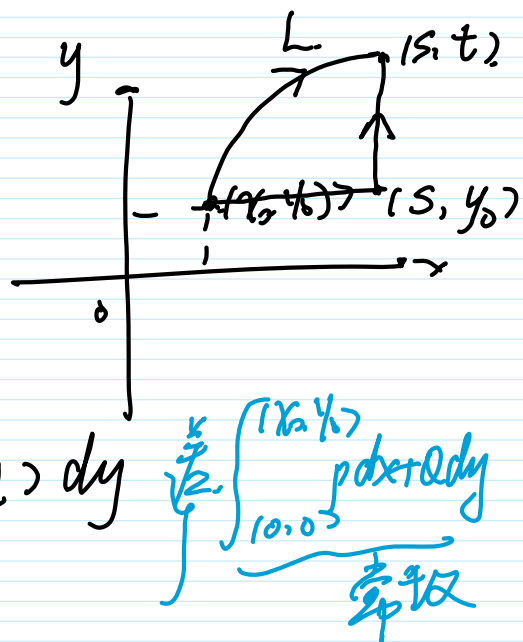 y
L
(s, t)
(x₀, y₀)
(s, y₀)
x
0
) dy
差 ∫_{(0,0)}^{(x₀,y₀)} Pdx+Qdy
常数